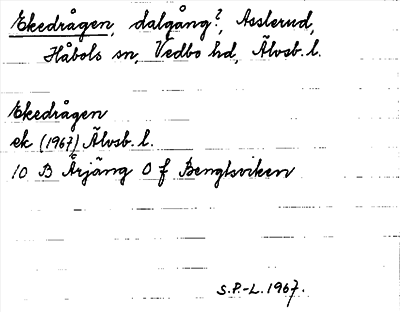 Ekedrågen, dalgång?, Asslerud,
Håbols sn, Vedbo hd, Älvsb. l.
Ekedrågen
ek (1967) Älvsb. l.
10 B Årjäng O f Bengtsviken
S.P.-L. 1967.